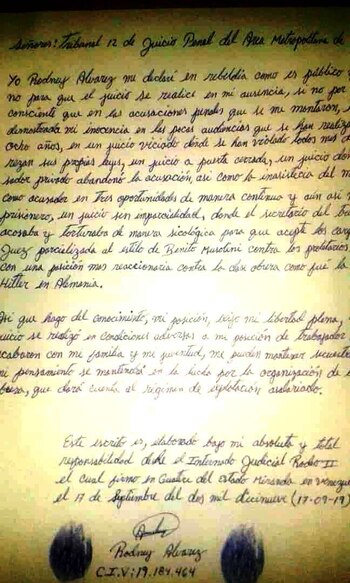 Señores: Tribunal 12 de Juicio Penal del Area Metropolitana de
Yo Rodney Alvarez me declaré en rebeldía como es público y
no para que el juicio se realice en mi ausencia, si no por
consciente que en las acusaciones penales que se me montaron,
demostrada mi inocencia en las pocas audiencias que se han realizado
ocho años, en un juicio viciado donde se han violado todos mis de
rezan sus propias leyes, un juicio a puerta cerrada, un juicio don
sador privado abandonó la acusación, asi como la inasistencia del m
como acusador en tres oportunidades de manera continua y aún asi
prisionero, un juicio sin imparcialidad, donde el secretario del
acosaba y torturaba de manera sicológica para que acepte los carg
Juez parcializada al estilo de Benito Musolini contra los proletarios
con una posición mas reaccionaria contra la clase obrera como fué la
Hitler en Alemania.
Asi que hago del conocimiento, mi posición, exijo mi libertad plena,
juicio se realizó en condiciones adversas a mi posición de trabajador
acabaron con mi familia y mi juventud, me pueden mantener secuestr
mi pensamiento se mantendrá en la lucha por la organización de
obrera, que dará cuenta al régimen de explotación asalariado.
Este escrito es, elaborado bajo mi absoluta y total
responsabilidad desde el Internado Judicial Rodeo II
el cual firmo en Guatire del estado Miranda en Venezue
el 17 de Septiembre del dos mil diecinueve (17-09-19)
Rodney Alvarez
C.I.V: 19.184.464